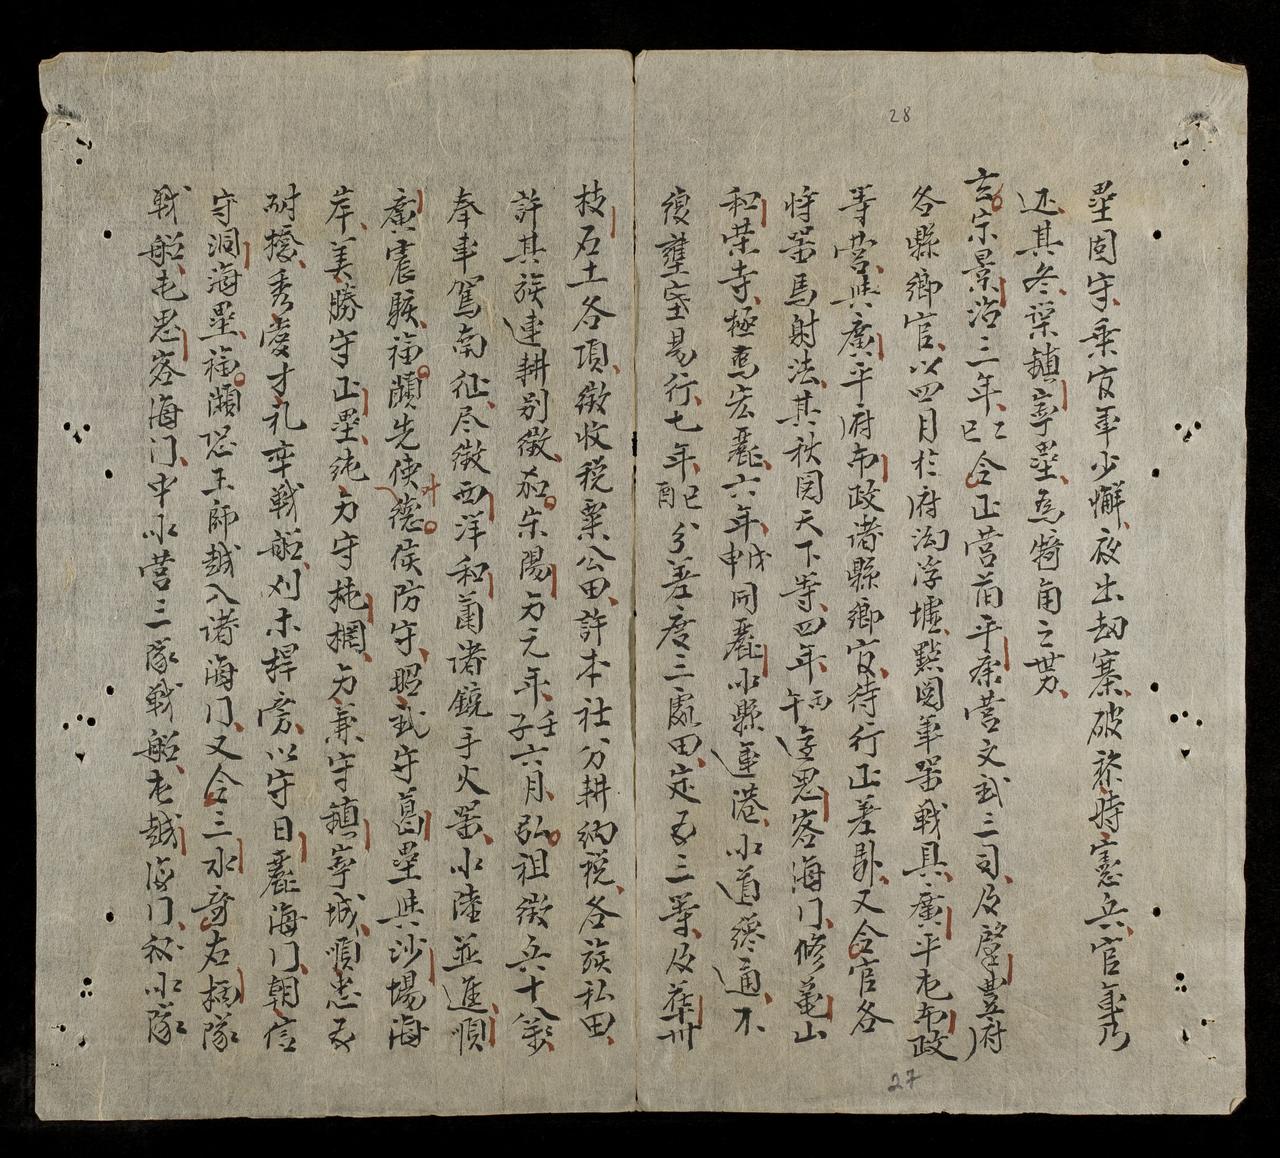 28
壘固守乘官軍少懈夜出刼寨破黎時憲兵官軍乃
还其冬築鎮寧壘為犄角之势
玄宗景治三年乙巳令正营莆平康营文武三司及肇豊府
各縣鄉官以四月於府沟浮墟點閱軍器戰具廣平屯布政
等营與廣平府布政诸縣鄉官待行正差卧又令官各
将器馬射法其秋閱天下等四年丙午塟思客海门修亀山
和荣寺極為宏麗六年戊申開麗水縣連港水道縂通不
復壅塞易行七年己酉分差度三處田定为三等及莽丗
枝石土各項徵收税業公田許本社分耕納税各族私田
許其族連耕别徵加宗陽力元年壬子六月弘祖徵兵十八餘
奉車駕南征尽徵西洋和蘭诸鏡手火器水陸並進順
廣震賑福顏先使德侯防守昭武守葛壘與沙場海
岸美勝守正壘純力守柂櫊力兼守鎮寧城順忠为
耐援秀虔才礼率戰船刈木捍旁以守日麗海门朝信
守洞海壘福顏恐王師越入诸海门又令三水竒左擒隊
戰船屯思客海门中水营三隊戰船屯越海门秘水隊
27